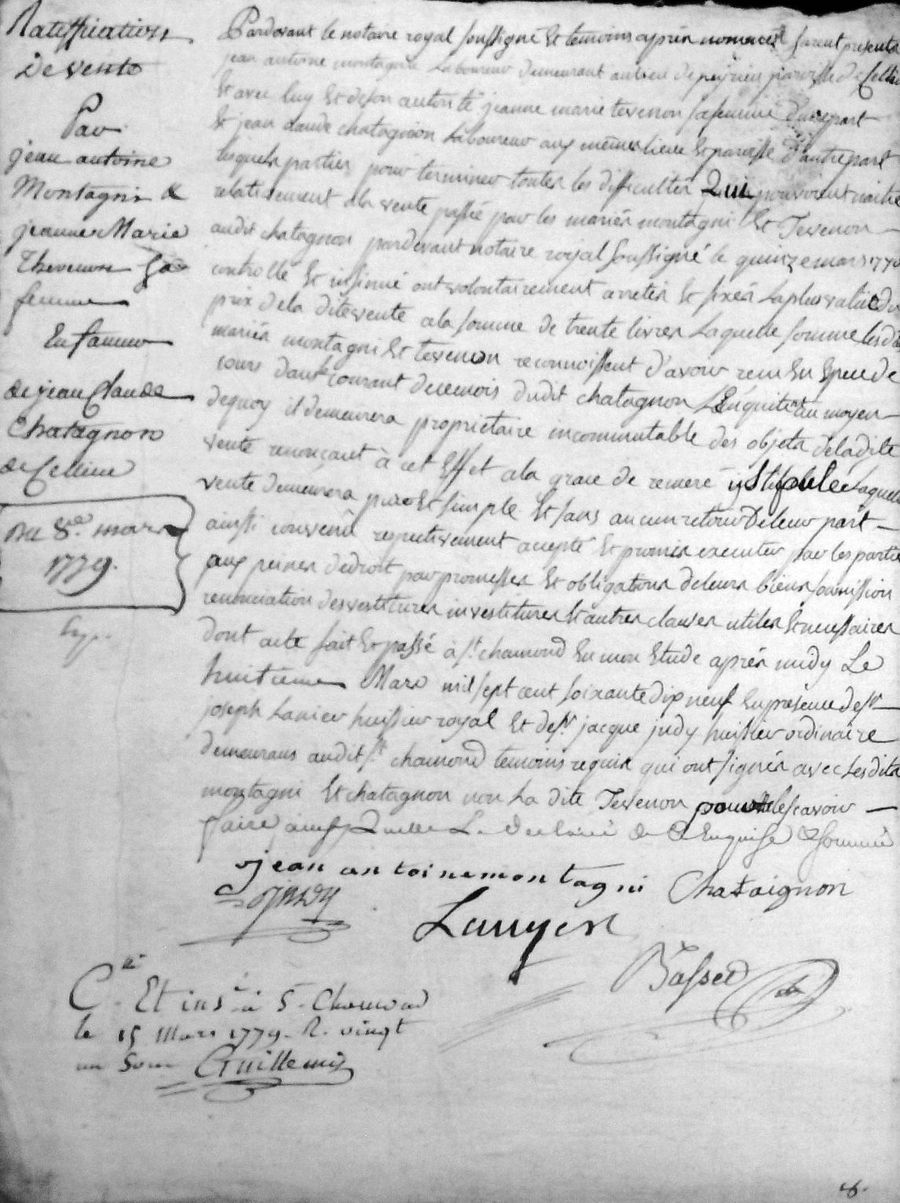 Ratiffication
De vente
Par
jean antoine
Montagni &
jeanne Marie
Thevenon Sa
femme
En faveur
de jean Claude
Chatagnon
de Cellieu
Du 8.e mars
1779.
Pardevant le notaire royal soussigné Et temoins après nommés furent presents
jean antoine montagni Laboureur demeurant au lieu de peyrieu paroisse de Cellieu
Et avec luy Et de son autorité jeanne marie tevenon sa femme d'une part
Et jean claude chatagnion Laboureur aux mêmes lieu Et paroisse d'autre part
lesquels parties pour terminer toutes les difficultés Qui pouvoient naitre
relativement a la vente passée par les mariés montagni Et Tevenon
audit chatagnon pardevant notaire royal soussigné le quinze mars 177
controllé Et insinué ont volontairement arretés Et fixés La plus value du
prix de la dite vente a la somme de trente livres Laquelle somme lesdits
mariés montagni Et tevenon reconnoissent d'avoir reçu En Espece de
cours d'aut courant de ce mois dudit chatagnon L'En quitte au moyen
dequoy il demeurera propriétaire incommutable des objets de la dite
vente renonçant à cet Effet a la grace de remeré y stipulée Laquelle
vente demeurera pure Et simple Et sans aucun retour De leur part
ainsi convenu respectivement accepté Et promis executer par les parties
aux peines de droit par promesses Et obligations de leurs biens soumission
renonciation desvestitures investitures Et autres clauses utiles Et necessaires
dont acte fait Et passé à St. chamond En mon Etude après midy Le
huitieme Mars mil sept cent soixante dix neuf En présence de sr.
joseph Lanier huissier royal Et de sr. jacque judy huissier ordinaire
demeurans audit St. chamond temoins requis qui ont signés avec Lesdits
montagni Et chatagnon non La dite Tevenon pour ne le scavoir
faire ainsy Quelle L'a Declairé de ce Enquise & sommée
jean antoine montagni Chataignon
judy
Lanyer
Basset
C.lé Et ins.é à St. Chamond
le 15 Mars 1779. R. vingt
un Sous Guillemin